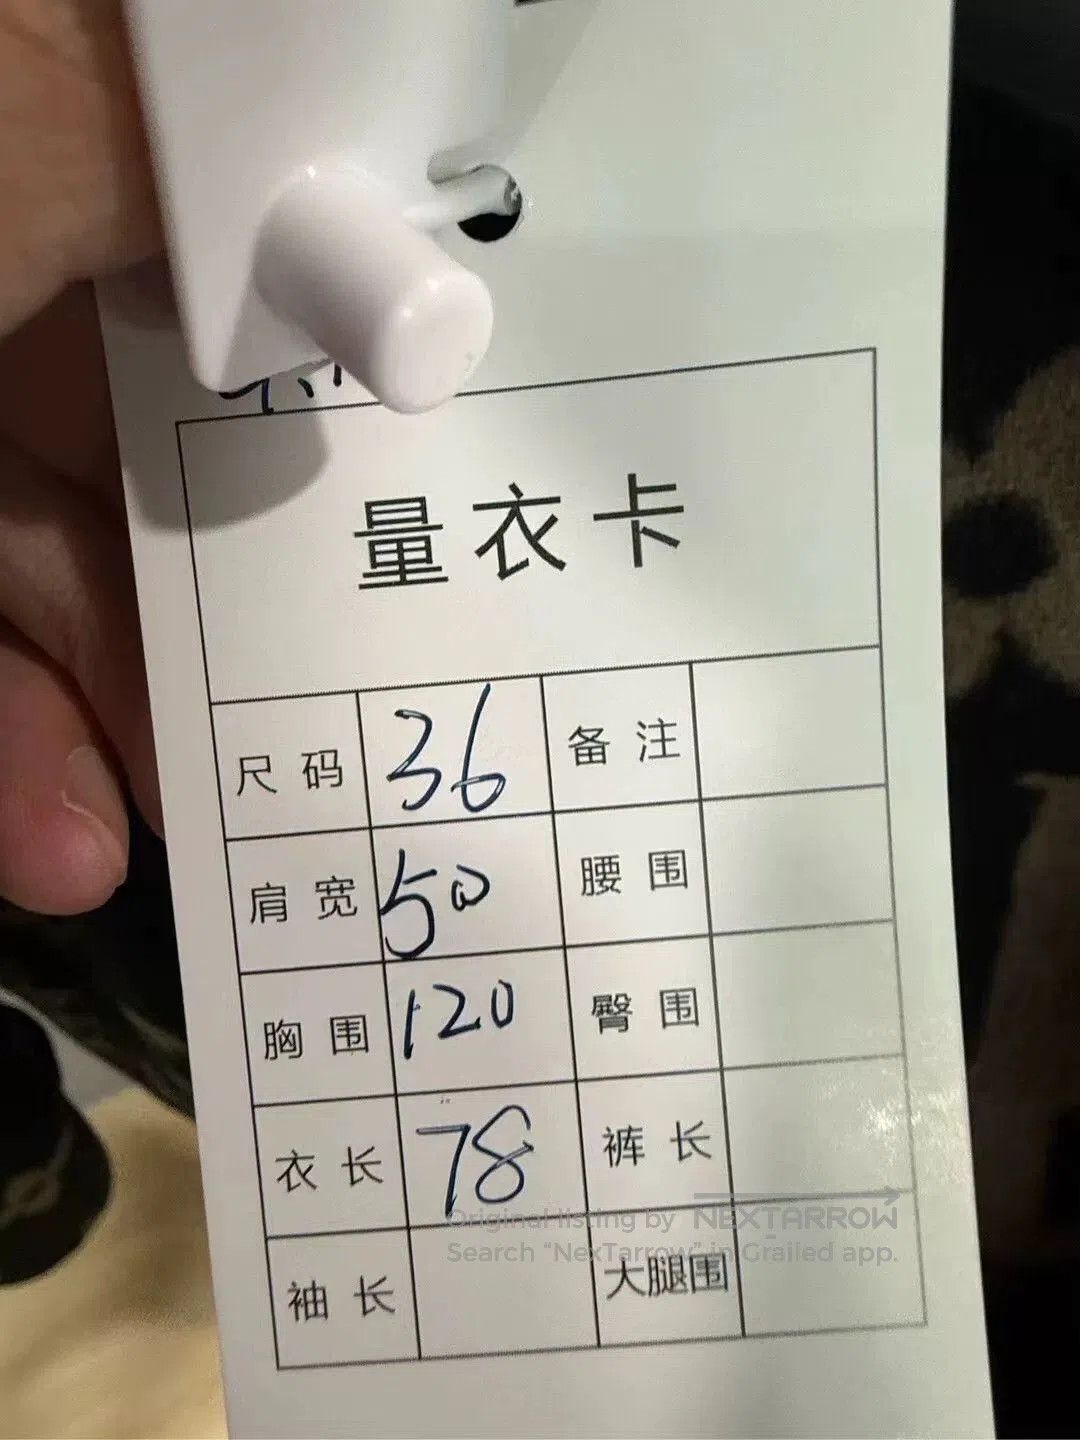 量衣卡
尺码 36 备注
肩宽 50 腰围
胸围 120 臀围
衣长 78 裤长
Original listing by NEXTARROW
Search "NexTarrow" in Grailed app.
袖长 大腿围